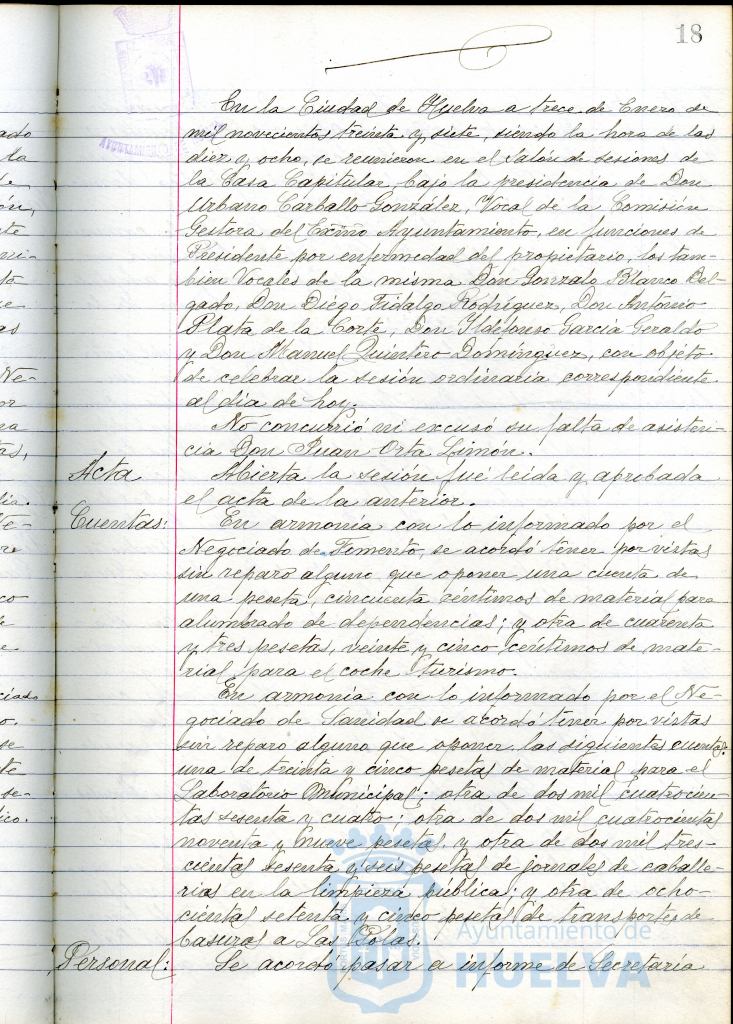 18
En la Ciudad de Huelva a trece de Enero de
mil novecientos treinta y siete, siendo la hora de las
diez y ocho, se reunieron en el Salón de sesiones de
la Casa Capitular, bajo la presidencia de Don
Urbano Carballo González, Vocal de la Comisión
Gestora del Excmo Ayuntamiento, en funciones de
Presidente por enfermedad del propietario, los tam-
bien Vocales de la misma Don Gonzalo Blanco Del-
gado, Don Diego Fidalgo Rodríguez, Don Antonio
Plata de la Corte, Don Ildefonso García Geraldo
y Don Manuel Quintero Domínguez, con objeto
de celebrar la sesión ordinaria correspondiente
al día de hoy.
No concurrió ni excusó su falta de asisten-
cia Don Juan Orta Limón.
Acta Abierta la sesión fué leida y aprobada
el acta de la anterior.
Cuentas: En armonía con lo informado por el
Negociado de Fomento, se acordó tener por vistas
sin reparo alguno que oponer una cuenta de
una peseta, cincuenta céntimos de material para
alumbrado de dependencias; y otra de cuarenta
y tres pesetas, veinte y cinco céntimos de mate-
rial para el coche turismo.
En armonía con lo informado por el Ne-
gociado de Sanidad se acordó tener por vistas
sin reparo alguno que oponer, las siguientes cuentas:
una de treinta y cinco pesetas de material para el
Laboratorio Municipal; otra de dos mil cuatrocien-
tas sesenta y cuatro; otra de dos mil cuatrocientas
noventa y nueve pesetas y otra de dos mil tres-
cientas sesenta y seis pesetas de jornales de caballe-
rias en la limpieza pública; y otra de ocho-
cientas setenta y cinco pesetas de transportes de
basuras a Las Bolas.
Personal: Se acordó pasar a informe de Secretaría
Ayuntamiento de
HUELVA